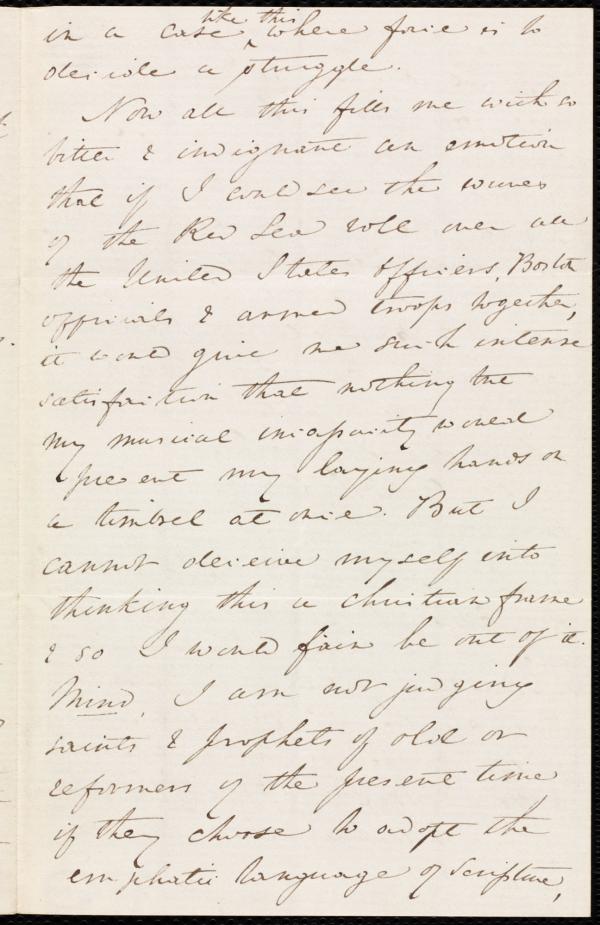 like this
in a case ^ where force is to
decide a struggle.
Now all this fills me with so
bitter & indignant an emotion
that if I could see the waves
of the Red Sea roll over all
the United States officers, Boston
officials & armed troops together,
it would give me such intense
satisfaction that nothing but
my musical incapacity would
prevent my laying hands on
a timbrel at once. But I
cannot deceive myself into
thinking this a christian frame
& so I would fain be out of it.
Mind, I am not judging
saints & prophets of old or
reformers of the present time
if they choose to adopt the
emphatic language of Scripture,